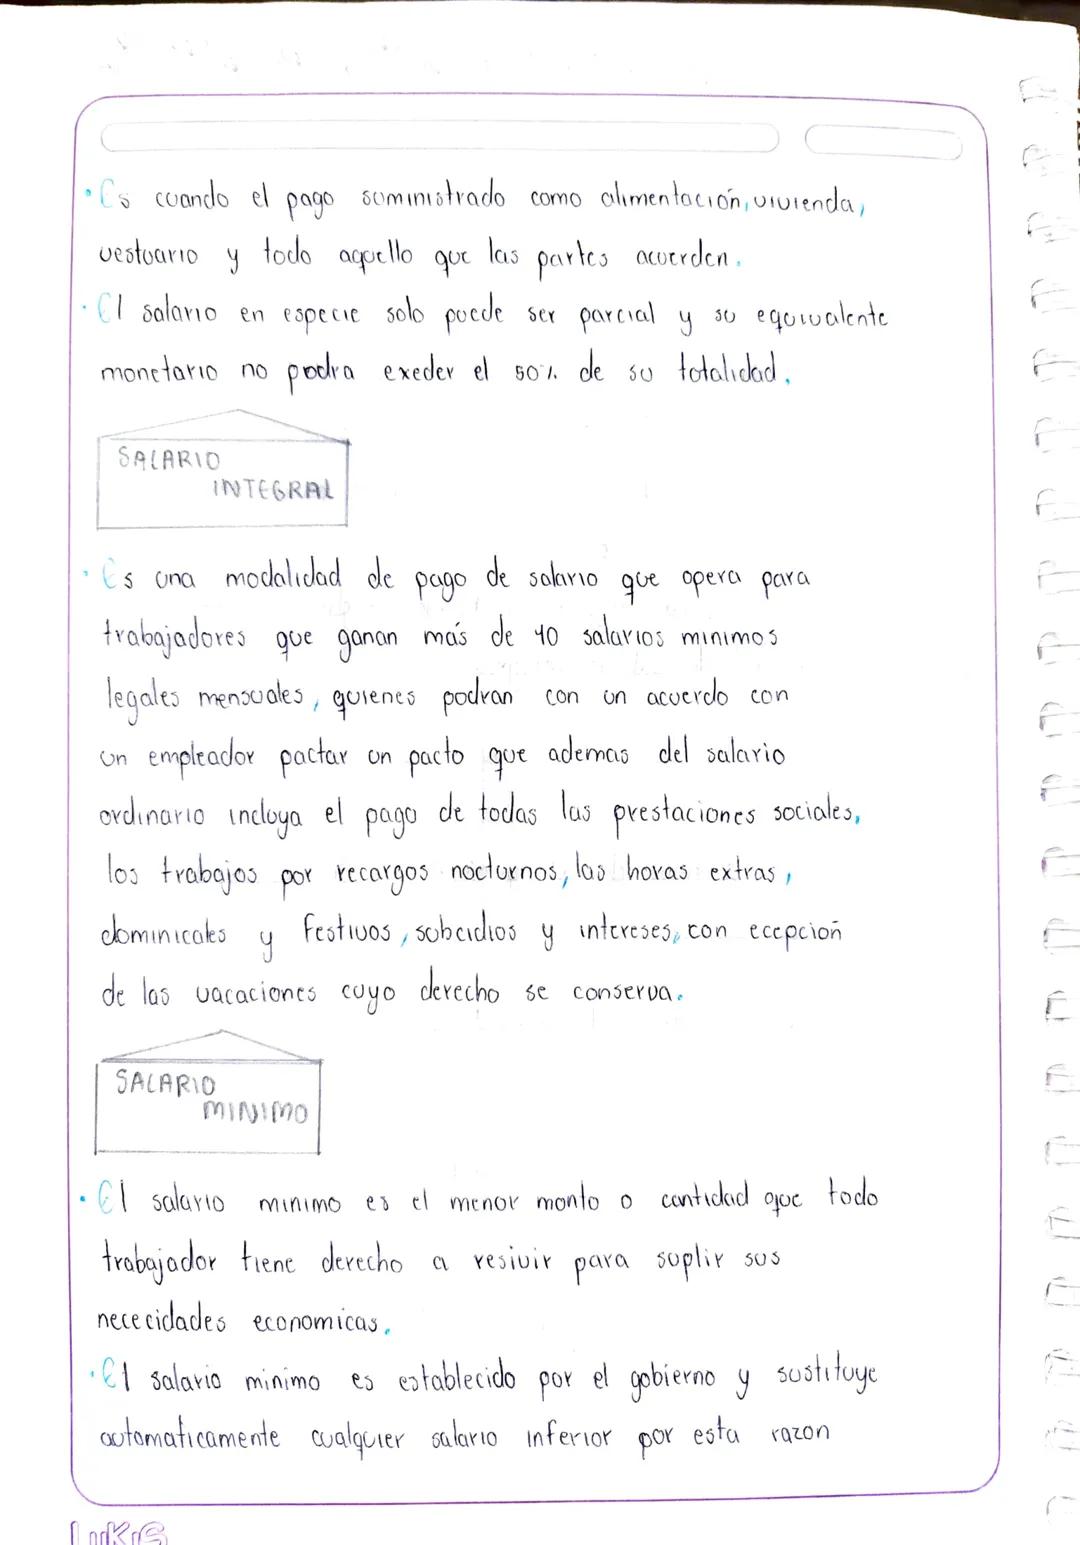 • Es cuando el pago suministrado como alimentación, vivienda,
vestuario y todo aquello que las partes acuerden.
• El salario en especie solo puede ser parcial y su equivalente
monetario no podra exeder el 50% de su totalidad.
SALARIO
INTEGRAL
• Es una modalidad de pago de salario que opera para
trabajadores que ganan más de 10 salarios minimos
legales mensuales, quienes podran con un acuerdo con
un empleador pactar un pacto que ademas del salario
ordinario incluya el pago de todas las prestaciones sociales,
los trabajos por recargos nocturnos, las horas extras,
dominicales y festivos, subcidios y intereses, con ecepción
de las vacaciones cuyo derecho se conserva.
SALARIO
MINIMO
• El salario minimo es el menor monto o cantidad que todo
trabajador tiene derecho a resivir para suplir sus
nececidades economicas.
• El salario minimo es establecido por el gobierno y sustituye
automaticamente cualquier salario inferior por esta razon
LUKIS